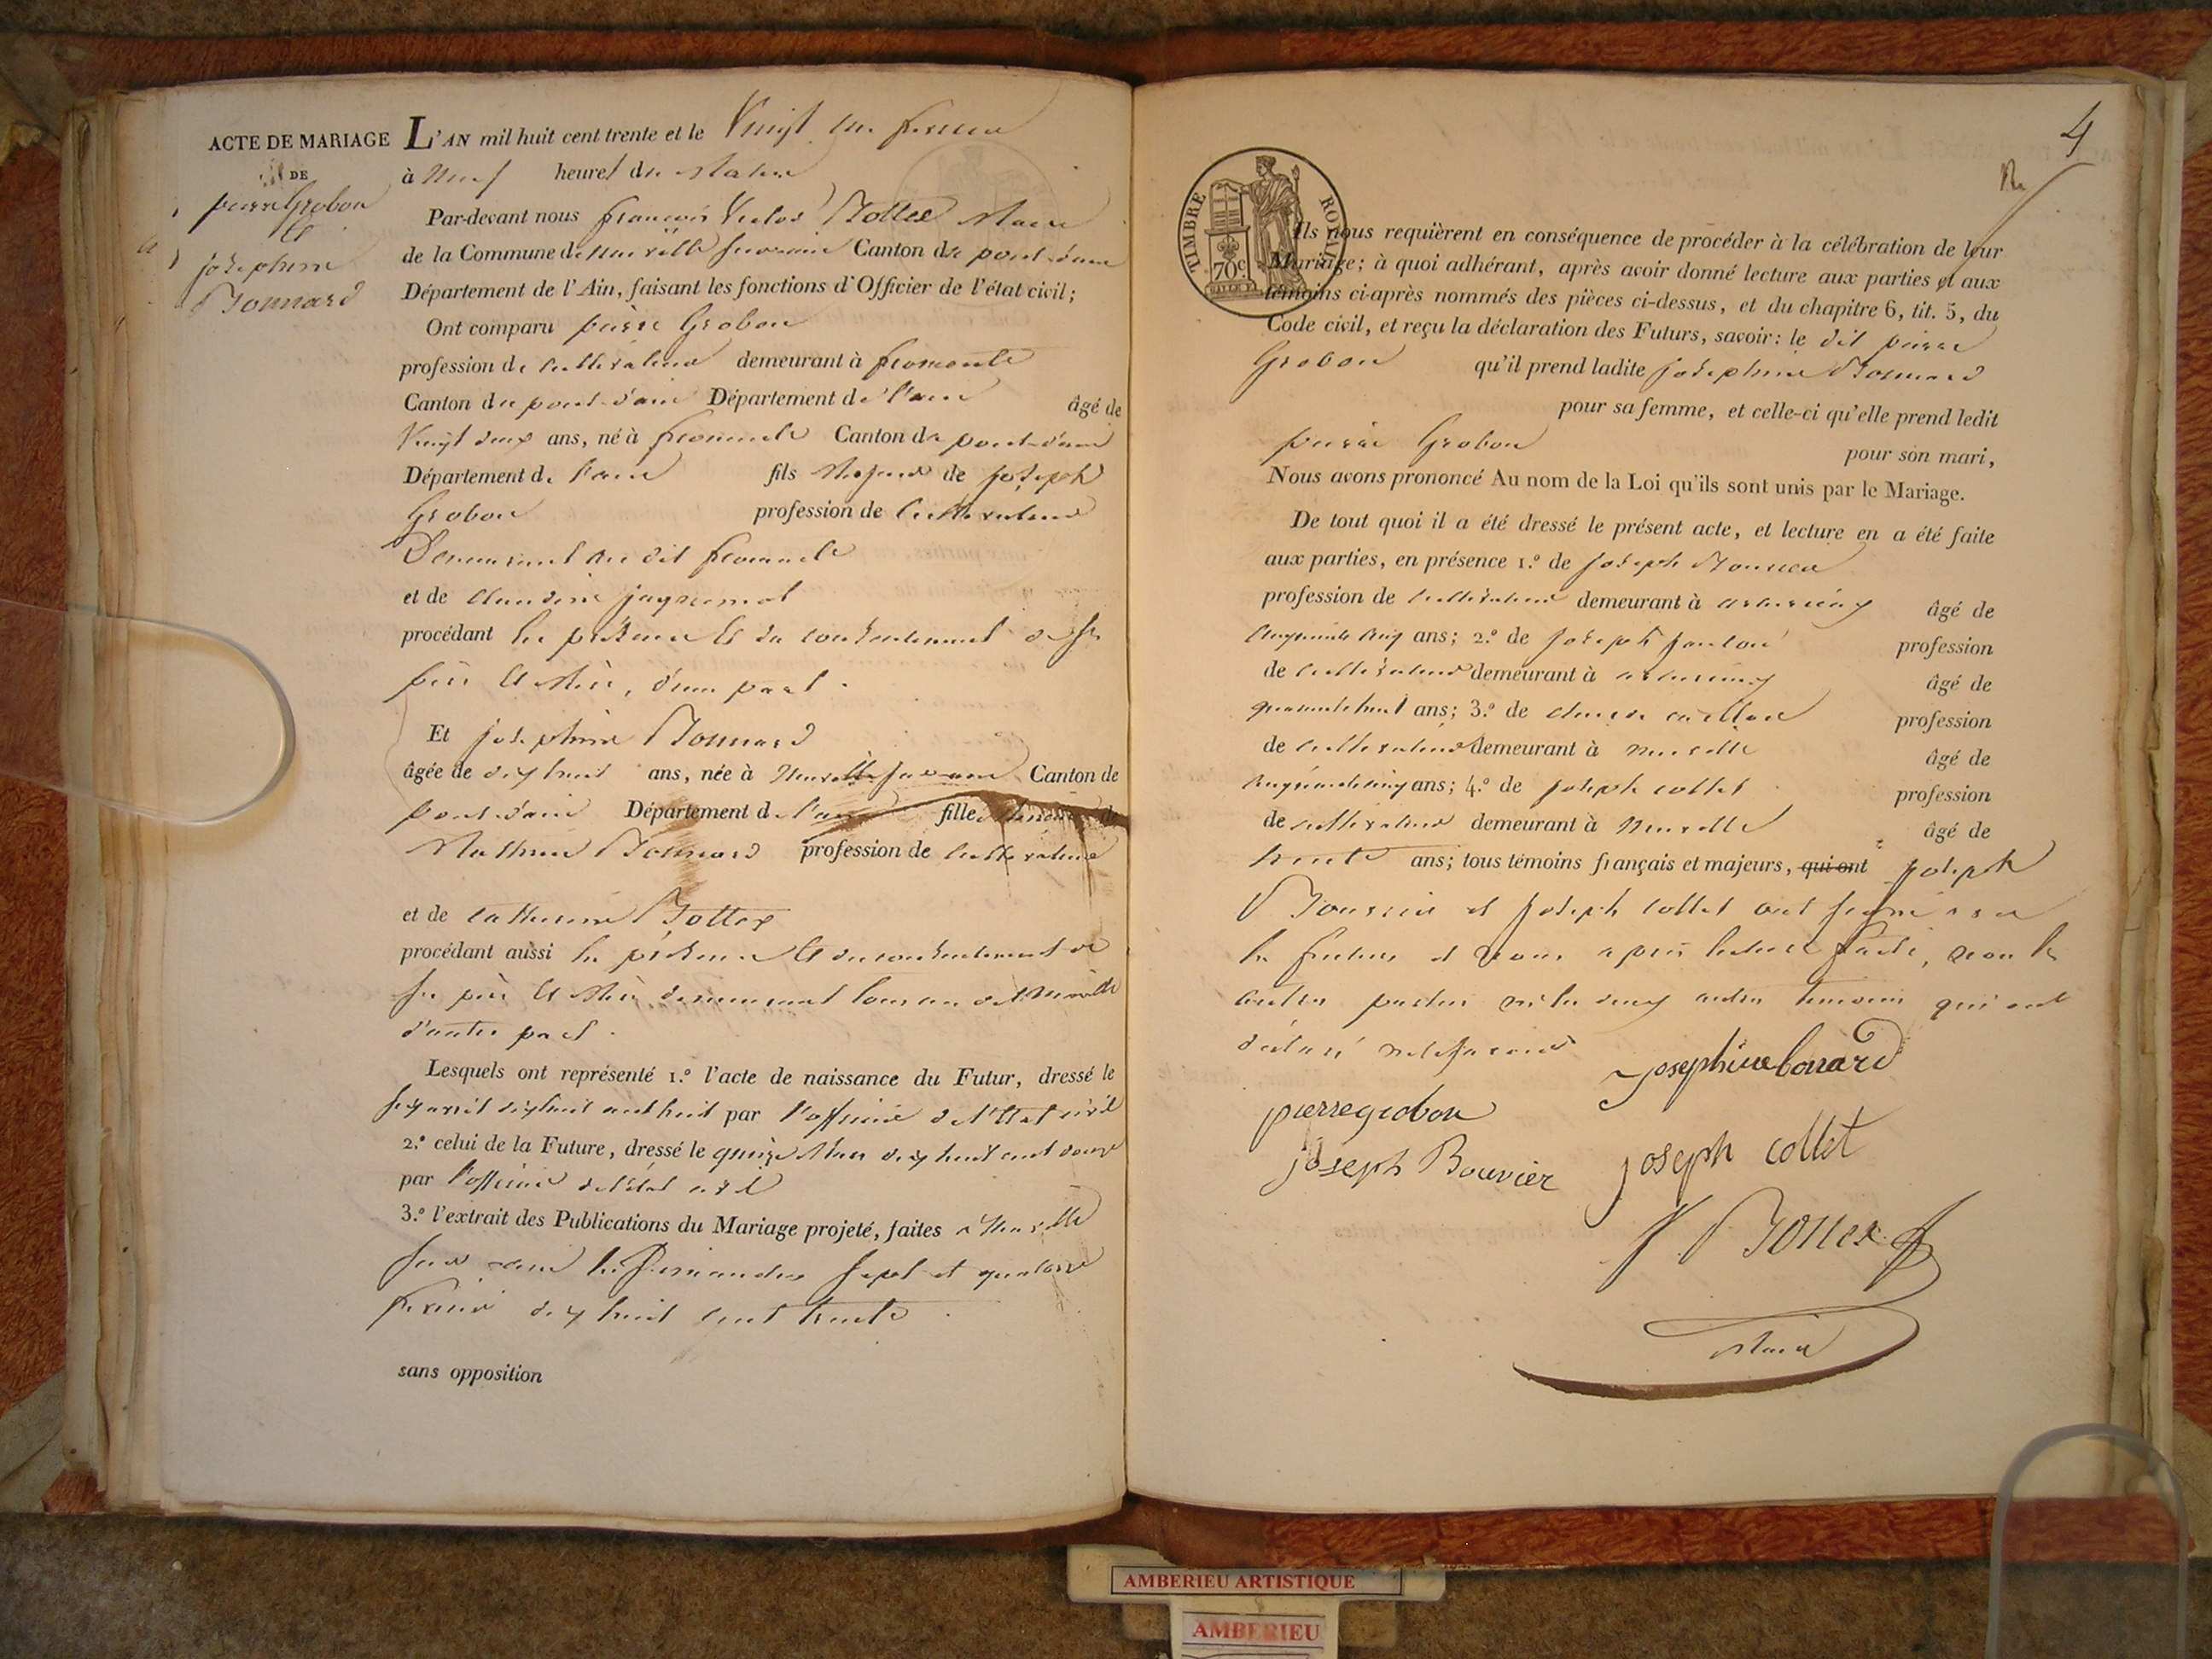 ACTE DE MARIAGE
DE
pierre Grobon
et
josephine
Bonnard
L'AN mil huit cent trente et le Vingt un fevrier
à Neuf heures du Matin
Par-devant nous françois Victor Bottex Maire
de la Commune de Neuville sur ain Canton de pont-d'ain
Département de l'Ain, faisant les fonctions d'Officier de l'état civil;
Ont comparu pierre Grobon
profession de cultivateur demeurant à fromente
Canton de pont-d'ain Département de l'ain âgé de
Vingt deux ans, né à fromente Canton de pont-d'ain
Département de l'ain fils Majeur de joseph
Grobon profession de cultivateur
Demeurant au dit fromente
et de claudine
procédant en présence et du consentement de ses
père et Mère, d'une part.
Et josephine Bonnard
âgée de dix huit ans, née à Neuville sur ain Canton de
pont-d'ain Département de l'ain fille Mineure de
Mathieu Bonnard profession de cultivateur
et de catherine Bottex
procédant aussi en présence et du consentement de
ses père et Mère demeurant tous au dit Neuville
d'autre part.
Lesquels ont représenté 1.º l'acte de naissance du Futur, dressé le
six avril dix huit cent huit par l'officier de l'Etat civil
2.º celui de la Future, dressé le quinze Mars dix huit cent douze
par l'officier de l'état civil
3.º l'extrait des Publications du Mariage projeté, faites à Neuville
sur ain les Dimanches sept et quatorze
fevrier dix huit cent trente.
sans opposition
4
TIMBRE ROYAL
70c
Ils nous requièrent en conséquence de procéder à la célébration de leur
Mariage; à quoi adhérant, après avoir donné lecture aux parties et aux
témoins ci-après nommés des pièces ci-dessus, et du chapitre 6, tit. 5, du
Code civil, et reçu la déclaration des Futurs, savoir: le dit pierre
Grobon qu'il prend ladite josephine Bonnard
pour sa femme, et celle-ci qu'elle prend ledit
pierre Grobon pour son mari,
Nous avons prononcé Au nom de la Loi qu'ils sont unis par le Mariage.
De tout quoi il a été dressé le présent acte, et lecture en a été faite
aux parties, en présence 1.º de joseph Bouvier
profession de cultivateur demeurant à âgé de
cinquante cinq ans; 2.º de joseph profession
de cultivateur demeurant à âgé de
quarante huit ans; 3.º de claude profession
de cultivateur demeurant à neuville âgé de
cinquante cinq ans; 4.º de joseph collet profession
de cultivateur demeurant à Neuville âgé de
trente ans; tous témoins français et majeurs, qui ont joseph
Bouvier et joseph collet ont signé avec
les futurs et nous après lecture faite, non les
autres parties ni les deux autres temoins qui ont
déclaré ne le savoir
josephine bonard
pierre grobon
joseph Bouvier
joseph collet
V. Bottex
Maire
AMBERIEU ARTISTIQUE
AMBERIEU